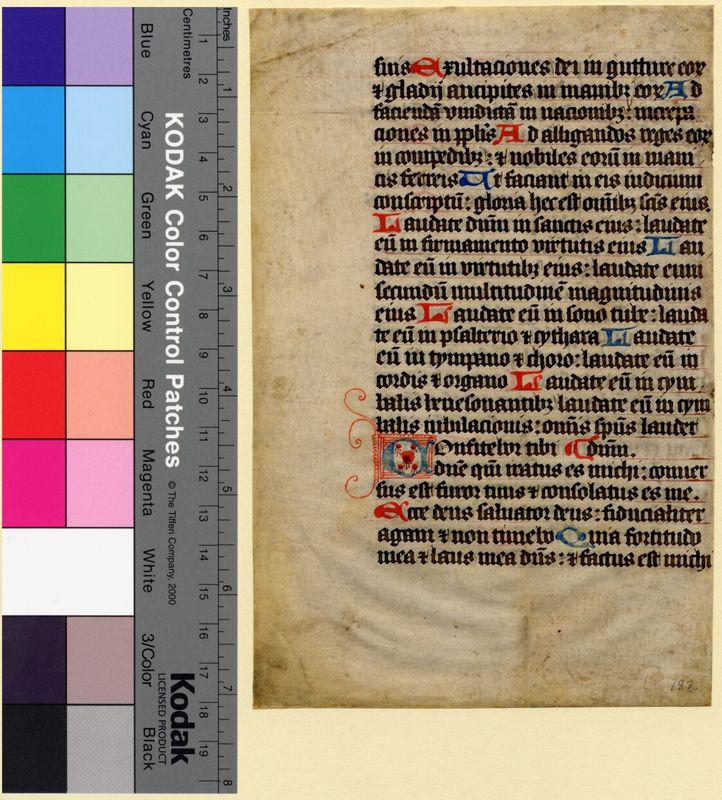 Blue
Cyan
Green
Yellow
Red
Magenta
White
3/Color
Black
KODAK Color Control Patches
© The Tiffen Company, 2000
Kodak
LICENSED PRODUCT
Inches
1
2
3
4
5
6
7
8
Centimetres
1
2
3
4
5
6
7
8
9
10
11
12
13
14
15
16
17
18
19
suis Exultaciones dei in gutture eoꝝ
⁊ gladij ancipites in manibꝫ eoꝝ Ad
faciendā vindictā in nacionibꝫ: increpa
ciones in pp̄lis Ad alligandos reges eoꝝ
in compedibꝫ: ⁊ nobiles eorū in mani
cis ferreis Ut faciant in eis iudicium
conscriptū: gloria hec est om̄ibꝫ sc̄is eius.
Laudate dn̄m in sanctis eius: laudate
eū in firmamento virtutis eius Lau
date eū in virtutibꝫ eius: laudate eum
secundū multitudinē magnitudinis
eius Laudate eū in sono tube: lauda
te eū in psalterio ⁊ cythara Laudate
eū in tympano ⁊ choro: laudate eū in
cordis ⁊ organo Laudate eū in cym
balis benesonantibꝫ laudate eū in cym
balis iubilacionis: om̄is sp̄us laudet
Confitebor tibi dn̄m.
dn̄e qm̄ iratus es michi: conuer
sus est furor tuus ⁊ consolatus es me.
Ecce deus saluator deus: fiducialiter
agam ⁊ non timebo Quia fortitudo
mea ⁊ laus mea dn̄s: ⁊ factus est michi
182